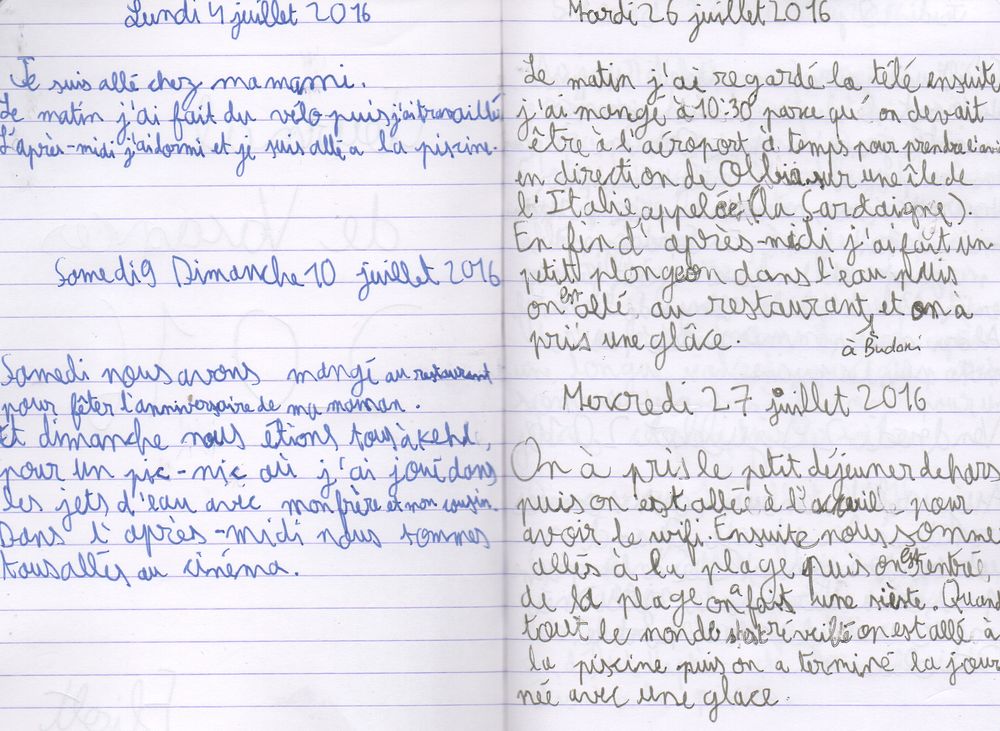 Lundi 4 juillet 2016
Je suis allé chez mamami.
Le matin j'ai fait du vélo puis j'ai travaillé
L'après-midi j'ai dormi et je suis allé a la piscine.
Samedi 9 Dimanche 10 juillet 2016
Samedi nous avons mangé au restaurant
pour fêter l'anniversaire de ma maman.
Et dimanche nous étions tous à kehl,
pour un pic-nic où j'ai joué dans
les jets d'eau avec mon frère et mon cousin.
Dans l'après-midi nous sommes
tous allés au cinéma.
Mardi 26 juillet 2016
Le matin j'ai regardé la télé ensuite
j'ai mangé à 10:30 parce qu'on devait
être à l'aéroport à temps pour prendre l'avi
en direction de Olbia sur une île de
l'Italie appelée (la Sardaigne).
En fin d'après-midi j'ai fait un
petit plongeon dans l'eau puis
on est allé au restaurant, et on à
pris une glâce. à Budoni
Mercredi 27 juillet 2016
On à pris le petit déjeuner dehors
puis on est allé à l'acceuil pour
avoir le wifi. Ensuite nous somme
allés à la plage puis on est rentrée,
de la plage on a fait une sièste. Quand
tout le monde s'est réveillé on est allé à
la piscine puis on a terminé la jour
née avec une glace.